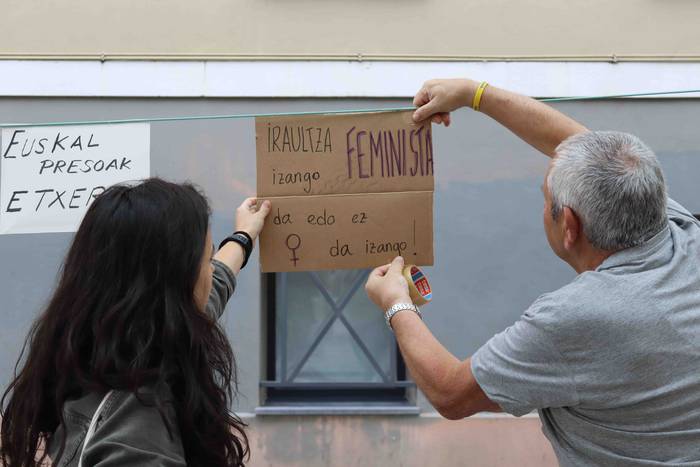 EUSKAL
PRESOAK
ETXER
IRAULTZA FEMINISTA
izango
da edo ez
da izango!